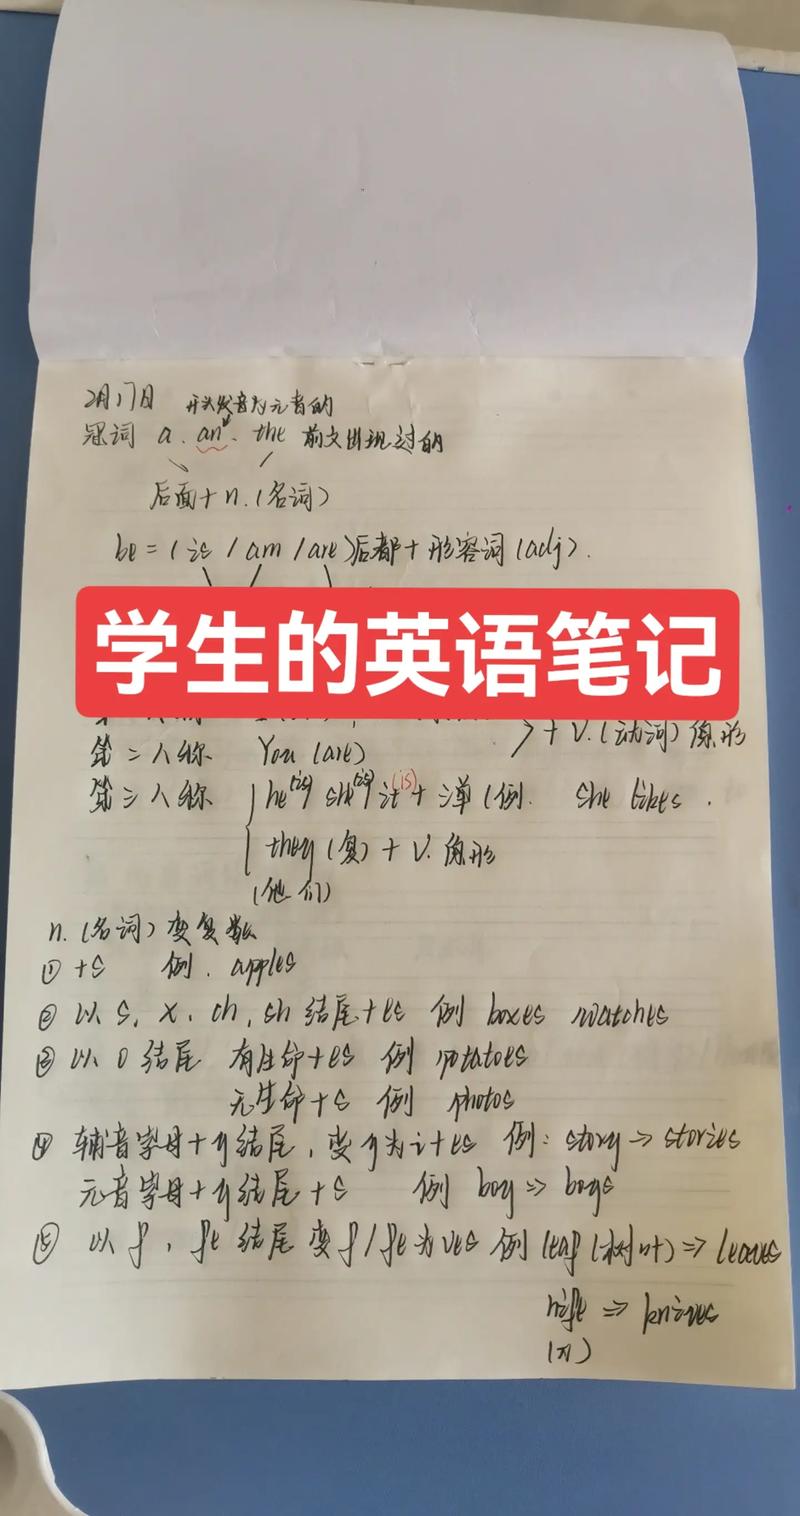 2月17日 开头发音为元音的
冠词 a、an、the 前文出现过的
后面+n.(名词)
be=(is/am/are)后都+形容词(adj).
学生的英语笔记
+V.(动词)原形
第二人称 You (are)
第三人称 he(is) she(is) it(is)+三单(例. she likes.
they(复)+V.原形
(他们)
n.(名词)变复数
①+s 例. apples
②以s,x,ch,sh结尾+es 例 boxes watches
③以o结尾 有生命+es 例 potatoes
无生命+s 例 photos
④辅音字母+y结尾,变y为i+es 例:story⇒stories
元音字母+y结尾+s 例 boy⇒boys
⑤以f,fe结尾变f/fe为ves 例 leaf(树叶)⇒leaves
⇒knives